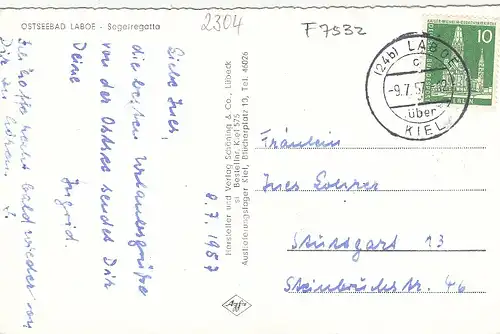 OSTSEEBAD LABOE - Segelregatta
2304
F7532
Liebe Ines,
die besten Urlaubsgrüße
von der Ostsee sendet Dir
Deine
Ingrid.
8.7.1957
Ich hoffe recht bald wieder von
Dir zu hören. D.
Hersteller und Verlag Schöning & Co., Lübeck
si Bestellnr. Kiel 575
Auslieferungslager Kiel, Blücherplatz 13, Tel. 46026
Agfa
(24b) LABOE
c
-9.7.57
über
KIEL
10
BERLIN
Fräulein
Ines
Stuttgart 13
Steinbruchstr. 46